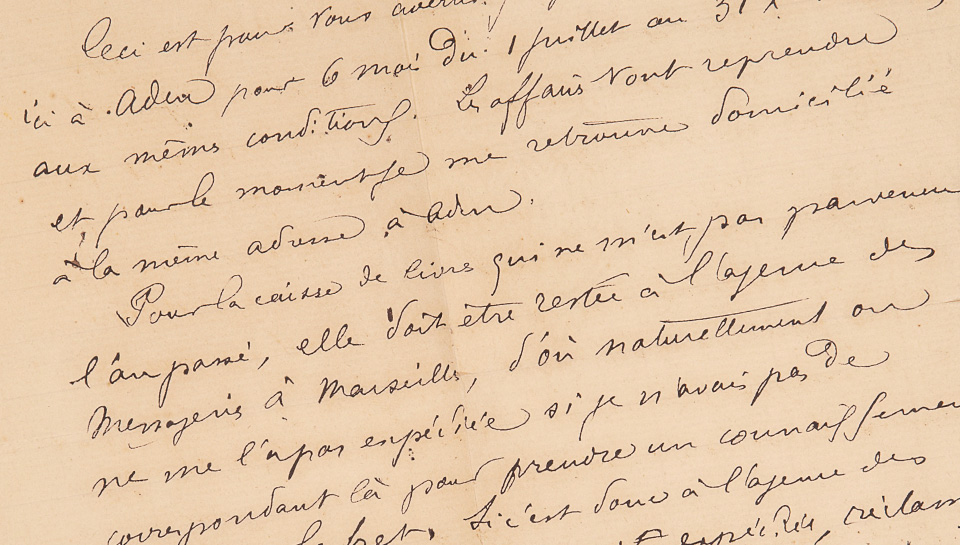 Ceci est pour vous
ici à Aden pour 6 mois du 1 juillet au 31 Xbre
aux mêmes conditions. Les affaires vont reprendre
et pour le moment je me retrouve domicilié
à la même adresse, à Aden.
Pour la caisse de livres qui ne m'est pas parvenue
l'an passé, elle doit être restée à l'agence des
Messageries à Marseille, d'où naturellement on
ne me l'a pas expédiée si je n'avais pas de
correspondant là pour prendre un connaissement
fret. Si c'est donc à l'agence des
expédiée, réclam